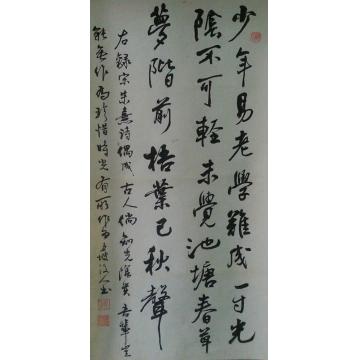 少年易老學難成一寸光
陰不可輕未覺池塘春草
夢階前梧葉已秋聲
右錄宋朱熹詩偶成古人倘知光陰貴吾輩豈
能無作為珍惜時光有所作為